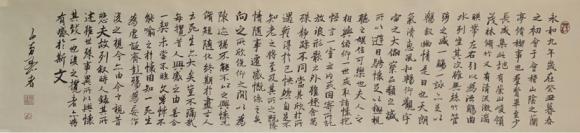 永和九年歲在癸丑暮春
之初會于會稽山陰之蘭
亭脩禊事也群賢畢至少
長咸集此地有崇山峻領
茂林脩竹又有清流激湍
映帶左右引以為流觴曲
水列坐其次雖無絲竹管
弦之盛一觴一詠亦足以
暢敘幽情是日也天朗
氣清惠風和暢仰觀宇
宙之大俯察品類之盛
所以遊目騁懷足以極視
聽之娛信可樂也夫人之
相與俯仰一世或取諸懷抱
悟言一室之內或因寄所託
放浪形骸之外雖趣舍萬
殊靜躁不同當其欣於所
遇暫得於己快然自足不
知老之將至及其所之既惓
情隨事遷感慨係之矣
向之所欣俛仰之間以為
陳跡猶不能不以之興懷
況脩短隨化終期於盡古人
云死生亦大矣豈不痛哉
每攬昔人興感之由若合
一契未嘗不臨文嗟悼不
能喻之於懷固知一死生
為虛誕齊彭殤為妄作
後之視今亦由今之視昔
悲夫故列敘時人錄其所
述雖世殊事異所以興懷
其致一也後之攬者亦將
有感於斯文